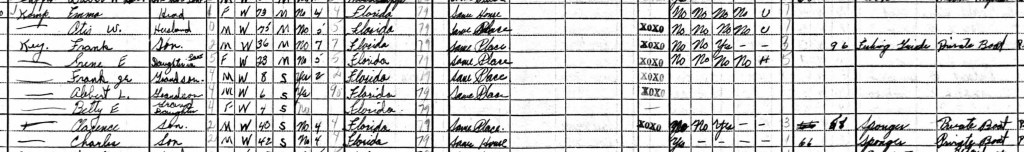 Kemp Emma Head F W 73 M No 4 4 Florida Same House No No No No U
Otis W. Husband M W 75 M No 5 Florida Same Place XOXO No No No No U
Key Frank Son 2 M W 36 M No 7 7 Florida 79 Same Place No No Yes — — 96 Fishing Guide Private Boat
— Irene E Daughter in law F W 28 M No 5 Florida 79 Same Place XOXO No No No No H
— Frank Jr Grandson M W 8 S Yes 2 Florida 79 Same Place XOXO
— Albert L. Grandson M W 6 S Yes Florida 79 Same Place XOXO
— Betty E Grand Daughter F W 4 S No Florida 79
— Clarence Son. 2 M W 40 S No 4 4 Florida 79 Same Place. XOXO No No Yes — — Sponger Private Boat
— Charles Son 2 M W 42 S No 4 4 Florida 79 Same House Yes — — — — 1 66 Sponger Private Boat